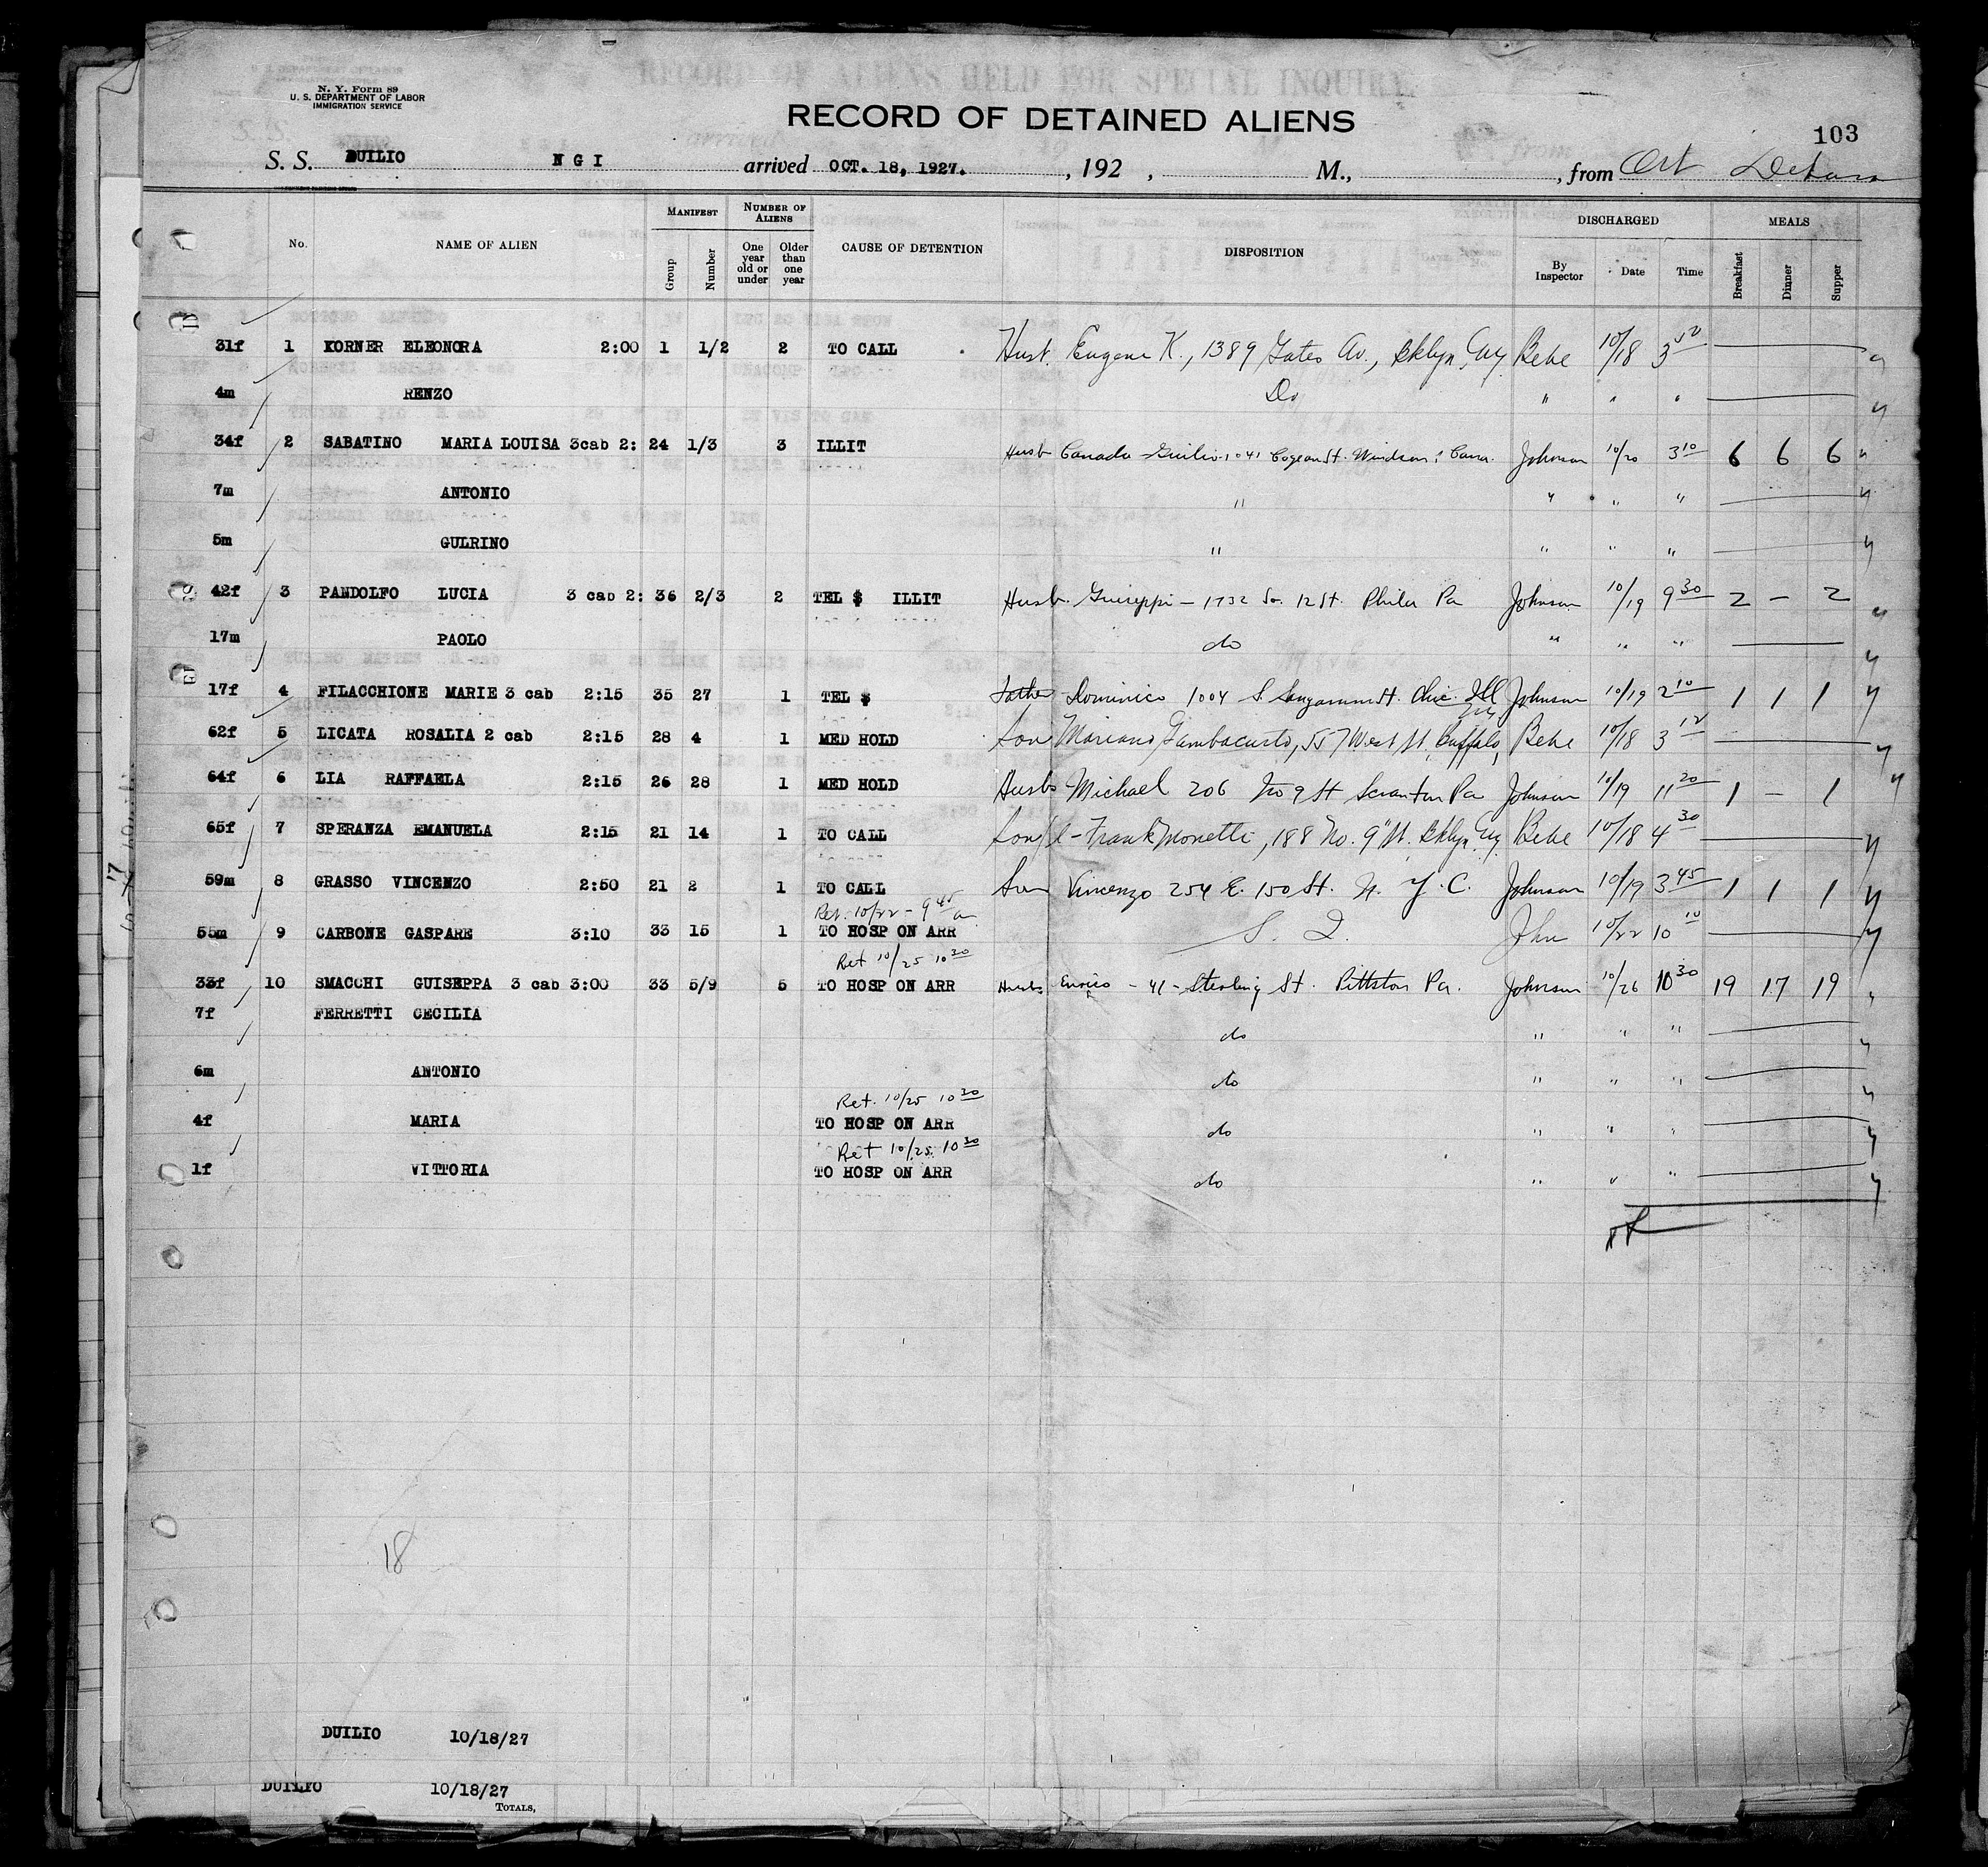 N. Y. Form 89
U. S. DEPARTMENT OF LABOR
IMMIGRATION SERVICE
RECORD OF ALIENS HELD FOR SPECIAL INQUIRY
RECORD OF DETAINED ALIENS
103
S. S. DUILIO N G I arrived OCT. 18, 1927. , 192 , M., , from
No. NAME OF ALIEN MANIFEST Group Number NUMBER OF ALIENS One year old or under Older than one year CAUSE OF DETENTION DISPOSITION DISCHARGED By Inspector Date Time MEALS Breakfast Dinner Supper
31f 1 KORNER ELEONORA 2:00 1 1/2 2 TO CALL Hust Eugene K., 1389 Gates Av., Bklyn, NY Bebe 10/18 3
4m RENZO Do " " "
34f 2 SABATINO MARIA LOUISA 3cab 2: 24 1/3 3 ILLIT Husb Canada Guilio 1041 St. Windsor, Cana. Johnson 10/20 3 10 6 6 6 "
7m ANTONIO " " " "
5m GULRINO " " " "
42f 3 PANDOLFO LUCIA 3 cab 2: 36 2/3 2 TEL $ ILLIT Husb. Guiseppi - 1732 So. 12 St. Phila Pa Johnson 10/19 9 30 2 - 2
17m PAOLO do " " "
17f 4 FILACCHIONE MARIE 3 cab 2:15 35 27 1 TEL $ Father Dominico 1004 S. Sangamon St. Chic. Ill Johnson 10/19 2 10 1 1 1
62f 5 LICATA ROSALIA 2 cab 2:15 28 4 1 MED HOLD Son Mariano Gambacurto, 557 West St, Buffalo, NY Bebe 10/18 3
64f 6 LIA RAFFAELA 2:15 26 28 1 MED HOLD Husb Michael 206 No 9 St Scranton Pa Johnson 10/19 11 20 1 - 1
65f 7 SPERANZA EMANUELA 2:15 21 14 1 TO CALL Son/l - Frank Monetti, 188 No. 9" St. Bklyn NY. Bebe 10/18 4 30
59m 8 GRASSO VINCENZO 2:50 21 2 1 TO CALL Vincenzo 254 E. 150 St. N. Y. C. Johnson 10/19 3 45 1 1 1
Ret. 10/22 - 9 45 a
55m 9 CARBONE GASPARE 3:10 33 15 1 TO HOSP ON ARR S. I. John 10/22 10 10
Ret 10/25 10 30
33f 10 SMACCHI GUISEPPA 3 cab 3:00 33 5/9 5 TO HOSP ON ARR Husb Enrico - 41 - Sterling St. Pittston Pa. Johnson 10/26 10 30 19 17 19
7f FERRETTI CECILIA do " " "
6m ANTONIO do " " "
Ret. 10/25 10 30
4f MARIA TO HOSP ON ARR do " " "
Ret 10/25 10 30
1f VITTORIA TO HOSP ON ARR do " " "
18
DUILIO 10/18/27
DUILIO 10/18/27
TOTALS,